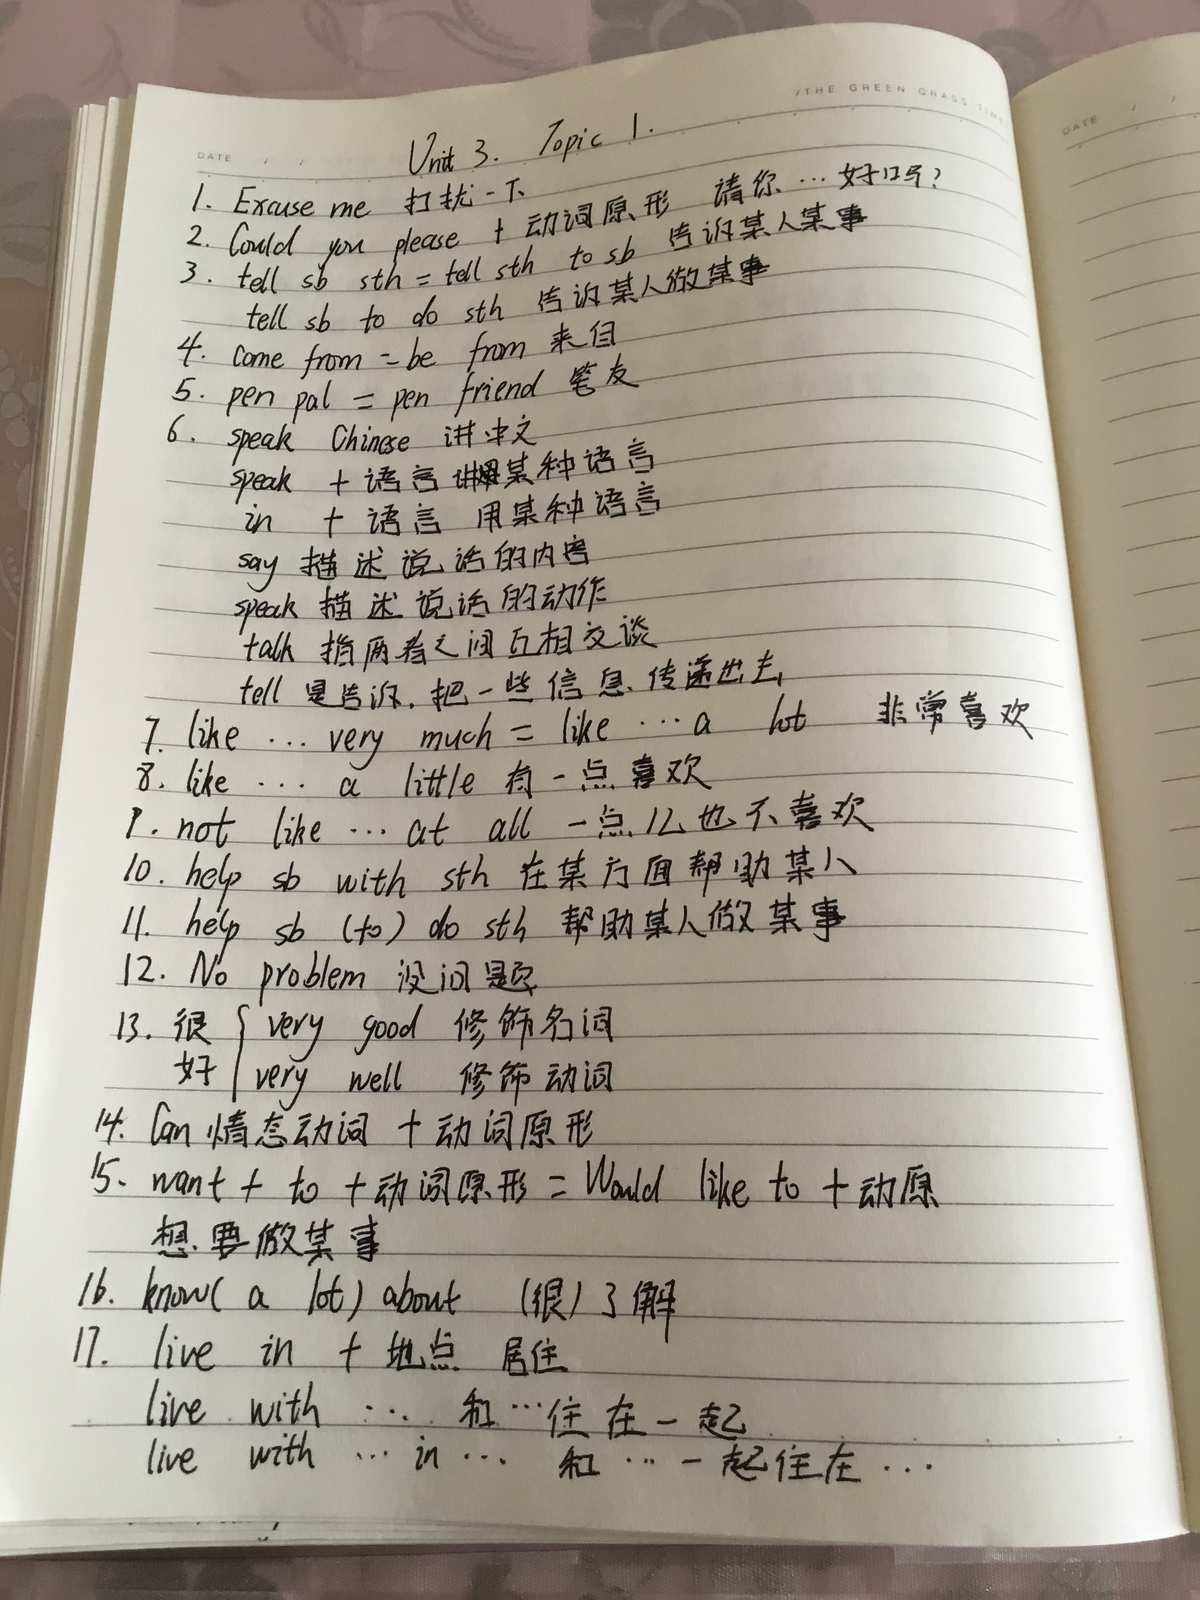 /THE GREEN GRASS TIME
DATE / /
DATE / /
Unit 3. Topic 1.
1. Excuse me 打扰一下
2. Could you please + 动词原形 请你…好吗?
3. tell sb sth = tell sth to sb 告诉某人某事
tell sb to do sth 告诉某人做某事
4. come from = be from 来自
5. pen pal = pen friend 笔友
6. speak Chinese 讲中文
speak + 语言 讲某种语言
in + 语言 用某种语言
say 描述说话的内容
speak 描述说话的动作
talk 指两者之间互相交谈
tell 是告诉,把一些信息传递出去
7. like … very much = like … a lot 非常喜欢
8. like … a little 有一点喜欢
9. not like … at all 一点儿也不喜欢
10. help sb with sth 在某方面帮助某人
11. help sb (to) do sth 帮助某人做某事
12. No problem 没问题
13. 很 { very good 修饰名词
好 very well 修饰动词
14. Can 情态动词 + 动词原形
15. want + to + 动词原形 = Would like to + 动原
想要做某事
16. know( a lot) about (很)了解
17. live in + 地点 居住
live with … 和…住在一起
live with … in … 和…一起住在…